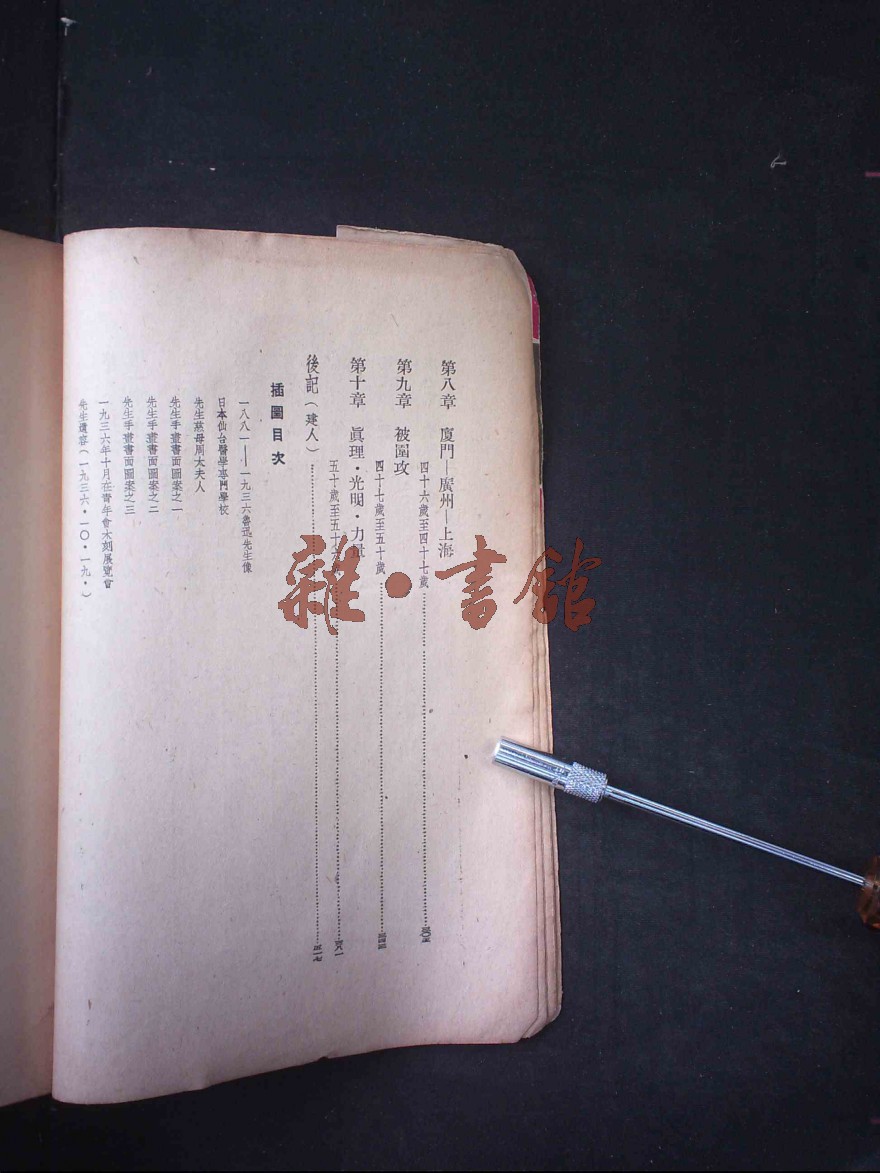 第八章 廈門—廣州—上海
四十六歲至四十七歲……三〇五
第九章 被圍攻
四十七歲至五十歲……三四三
第十章 眞理·光明·力量
五十歲至五十
後記（建人）……五一七
插圖目次
一八八一——一九三六魯迅先生像
日本仙台醫學專門學校
先生慈母周太夫人
先生手畫書面圖案之一
先生手畫書面圖案之二
先生手畫書面圖案之三
一九三六年十月在青年會木刻展覽會
先生遺容（一九三六·一〇·一九·）
雜·書館